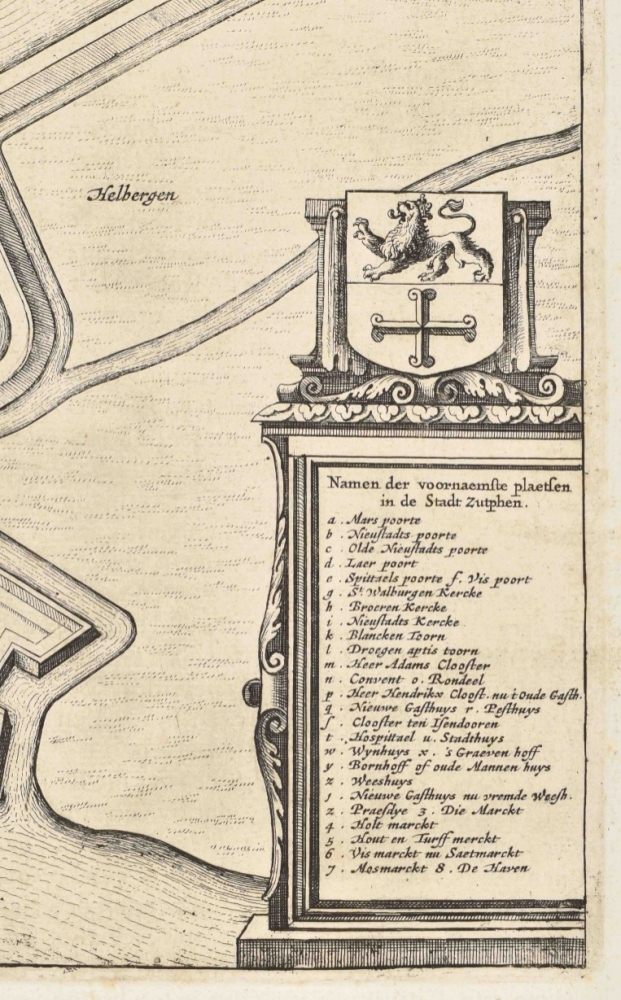 Helbergen
Namen der voornaemste plaetsen
in de Stadt Zutphen.
a . Mars poorte
b . Nieustadts poorte
c . Olde Nieustadts poorte
d . Laer poort
e . Spittaels poorte f. Vis poort
g . St. Walburgen Kercke
h . Broeren Kercke
i . Nieustadts Kercke
k . Blancken Toorn
l . Droegen aptis toorn
m . Heer Adams Clooster
n . Convent o. Rondeel
p . Heer Hendrikx Cloost. nu t Oude Gasth.
q . Nieuwe Gasthuys r. Pesthuys
ſ . Clooster ten Isendooren
t . Hospittael u. Stadthuys
w . Wynhuys x. 's Graeven hoff
y . Bornhoff of oude Mannen huys
z . Weeshuys
1 . Nieuwe Gasthuys nu vremde Weesh.
2 . Praesdye 3. Die Marckt
4 . Holt marckt
5 . Hout en Turff merckt
6 . Vis marckt nu Saetmarckt
7 . Mosmarckt 8. De Haven